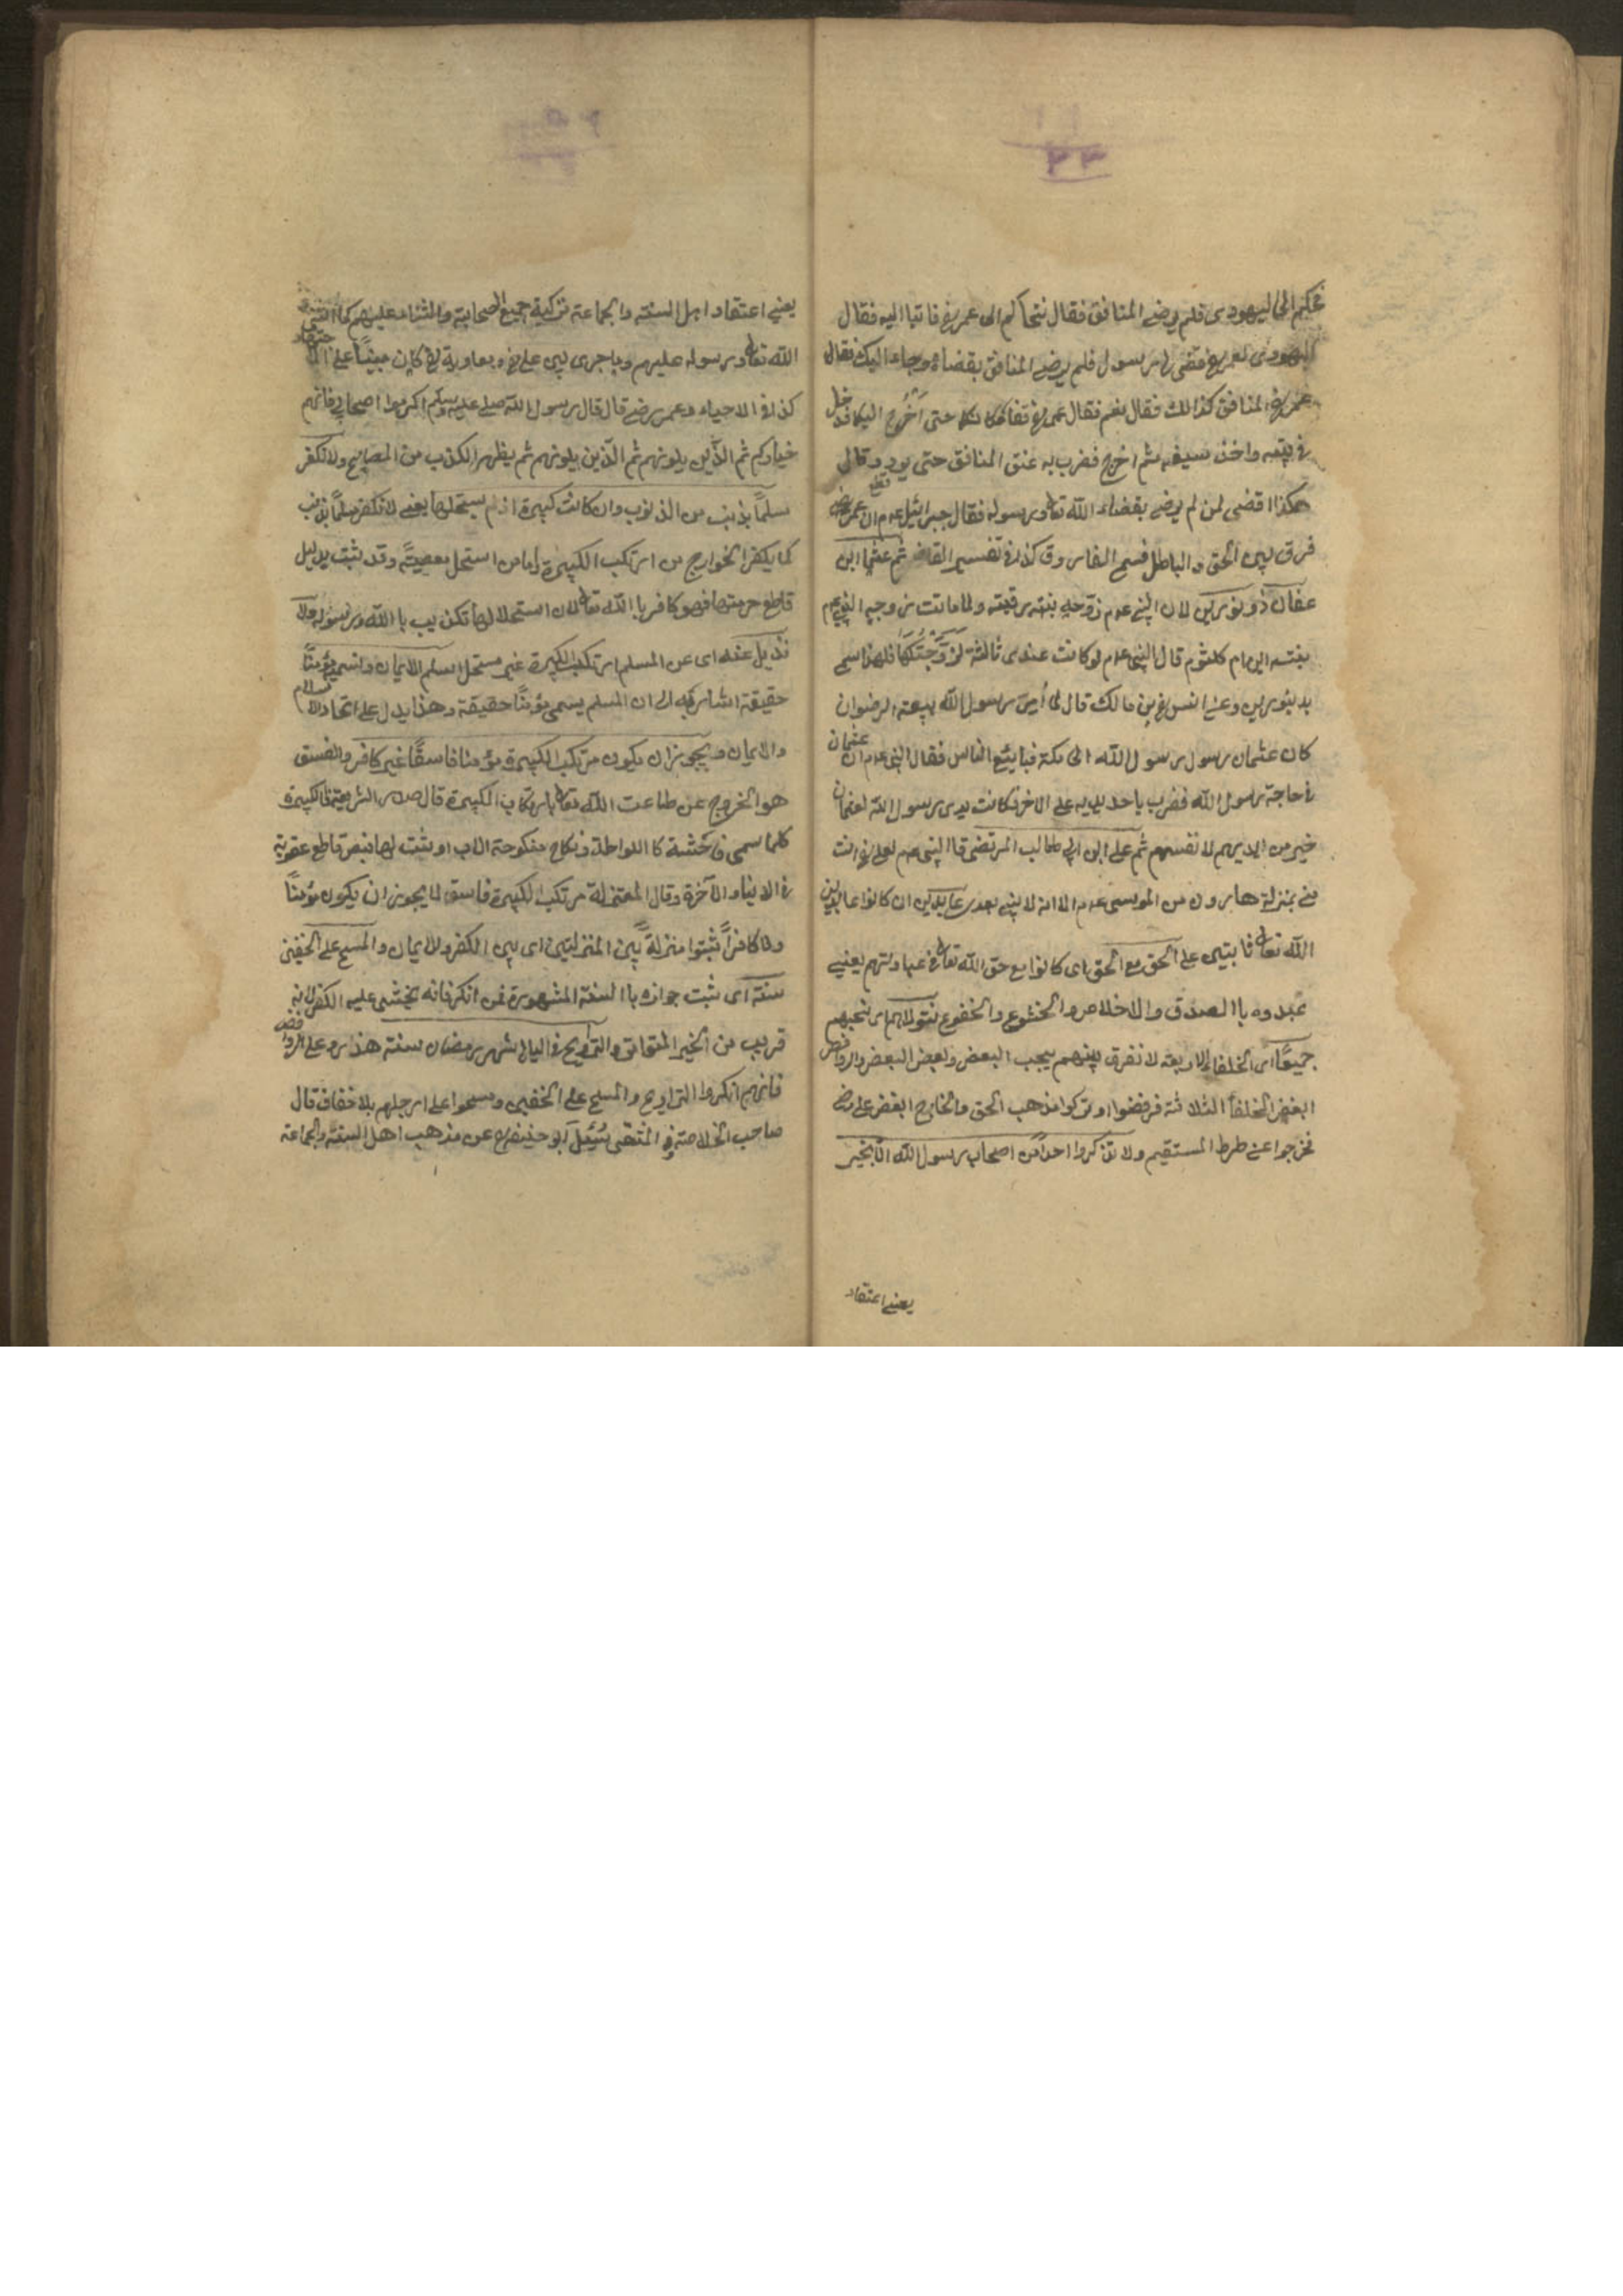 ٣٣
فحكم الى اليهودى فلم يرضى المنافق فقال نتحاكم الى عمر رض فاتيا اليه فقال
اليهودى لعمر رض قضى لى رسول فلم يرضى المنافق بقضاءه وجاء اليك فقال
عمر رض لمنافق كذالك فقال نعم فقال عمر رض فقا مكانكما حتى أَخْرُج اليكما فدخل
فى بيته واخذ سيفه ثم اخرج فضرب به عنق المنافق حتى برد وقال
هكذا اقضى لمن لم يرضى بقضاء الله تعا ورسوله فقال جبرائيل عم ان عمر رض
فرق بين الحق والباطل فسمى الفاروق كذا فى تفسير القاضى ثم عثمان ابن
عفان ذو نورين لان النبى عم زوّجه بنته رقية ولما ماتت زوجه النبى عم
بنته ام كلثوم قال النبى عم لو كانت عندى ثالثة لَزَوَّجْتُكَهَا فلهذا سمى
بذ نورين وعن انس رض بن مالك قال لما أمر رسول الله ببيعته الرضوان
كان عثمان رسول رسول الله الى مكة فبايع الناس فقال النبى عم ان عثمان
فى حاجة رسول الله فضرب باحد يديه على الاخر فكانت يدى رسول الله لعثمان
خير من ايديهم لانفسهم ثم على ابن ابى طالب المرتضى قال النبى عم لعلى رض انت
منى بمنزلة هارون من الموسى عم الا انه لا نبى بعدى عابدين ان كانوا عابدين
الله تعا ثابتين على الحق مع الحق اى كانوا مع حق الله تعا فى عبادتهم يعنى
عبدوه باالصدق والاخلاص والخشوع والخضوع نتولاهم اى نحبهم
جميعًا اى الخلفاء الاربعة لا نفرق بينهم بحب البعض وبغض البعض والروافض
ابغض الخلفأ الثلاثة فرفضوا وتركوا مذهب الحق والخارج ابغض على رض
فخرجوا عن طرط المستقيم ولا تذكروا احدًا من اصحاب رسول الله الّا بخير
يعنى اعتقاد
يعنى اعتقاد اهل السنة والجماعة تزكية جميع الصحابة والثناء عليهم كما اثنى
الله تعا ورسوله عليهم وما جرى بين على رض ومعاوية رض كان مبنيًا على الاجتهاد
كذا فى الاحياء وعمر رضى قال قال رسول الله صلى عليه وسلم اكرموا اصحابى فانهم
خياركم ثم الذين يلونهم ثم الّذين يلونهم ثم يظهر الكذب من المصابيح ولا نكفر
مسلمًا بذنب من الذنوب وان كانت كبيرة اذ لم يستحلها يعنى لا نكفر مسلمًا بذنب
كما يكفر الخوارج من ارتكب الكبيرة اما من استحل معصيتً وقد ثبت بدليل
قاطع حرمتها فهو كافر باالله تعا لان استحلالها تكذيب باالله ورسوله ولا
نزيل عنه اى عن المسلم ارتكب الكبيرة غير مستحل اسلم الايمان واسميه مؤمنًا
حقيقة اشار به الى ان المسلم يسمى مؤمنًا حقيقة وهذا يدل على اتحاد الاسلام
والايمان ويجوز ان يكون مرتكب الكبيرة مؤمنا فاسقًا غير كافر والفسق
هو الخروج عن طاعت الله تعا بارتكاب الكبيرة قال صدر الشريعة الكبيرة
كلما سمى فاحشة كا اللواطة ونكاح منكوحة الاب او ثبت لها بنص قاطع عقوبة
فى الدنيا والآخرة وقال المعتزلة مرتكب الكبيرة فاسق لا يجوز ان يكون مؤمنًا
ولا كافرًا ثبتوا منزلةً بين المنزلتين اى بين الكفر والايمان والمسح على الخفين
سنة اى ثبت جوازه باالسنة المشهورة فمن انكر فانه يخشى عليه الكفر لانه
قريب من الخبر المتواتر والتراويح فى اليالى شهر رمضان سنة هذا رد على الروافض
فانهم انكروا التراويح والمسح على الخفين ومسحوا على ارجلهم بلا خفاف قال
صاحب الخلاصة فى المنتقى سُئِلَ ابو حنيفه رح عن مذهب اهل السنة والجماعة